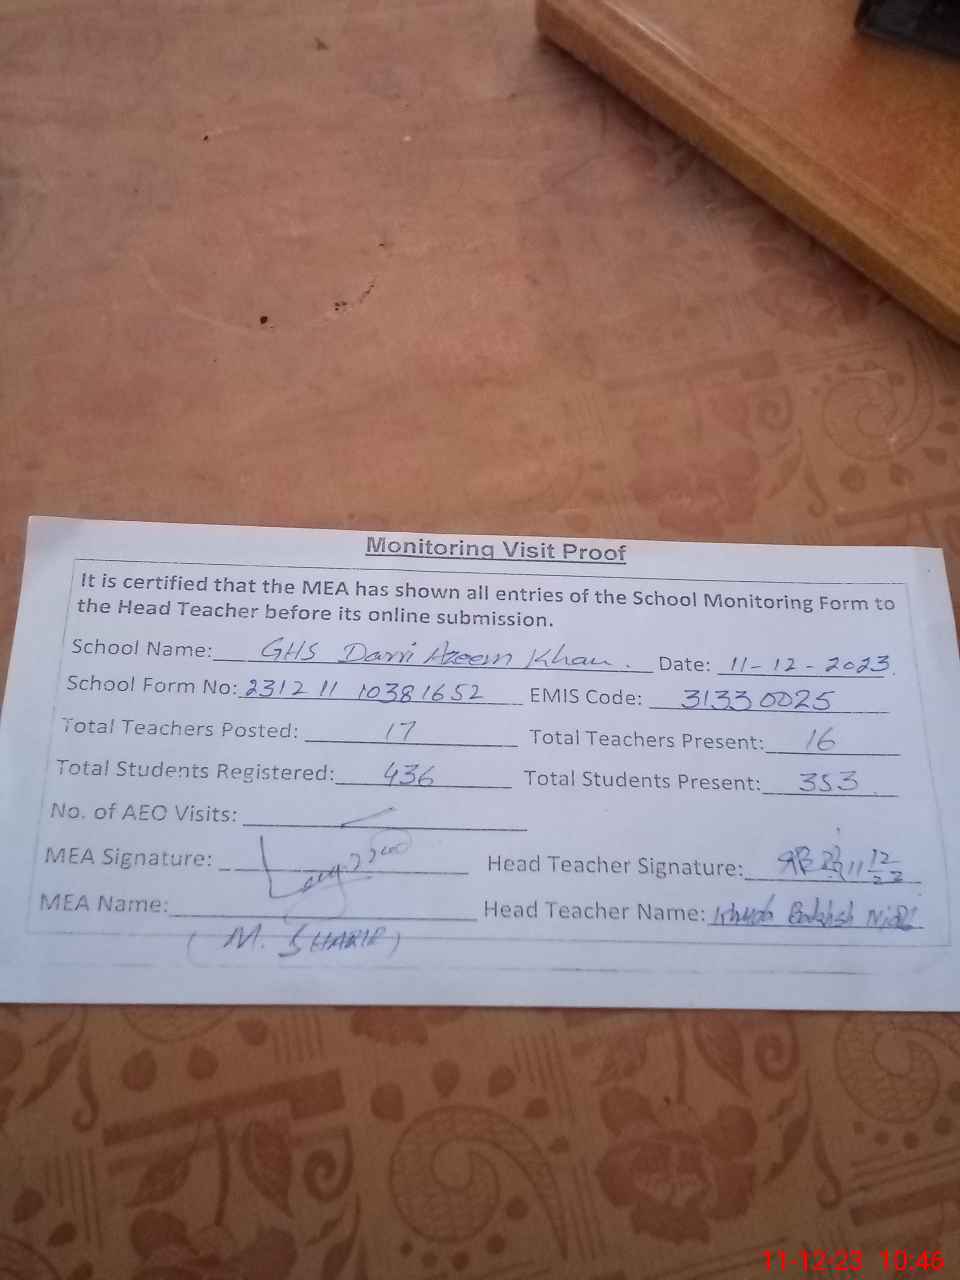 Monitoring Visit Proof
It is certified that the MEA has shown all entries of the School Monitoring Form to
the Head Teacher before its online submission.
School Name: GHS Darri Azeem Khan. Date: 11-12-2023
School Form No: 2312 11 10381652 EMIS Code: 31330025
Total Teachers Posted: 17 Total Teachers Present: 16
Total Students Registered: 436 Total Students Present: 353
No. of AEO Visits:
MEA Signature: Head Teacher Signature: 11 12
MEA Name: Head Teacher Name: Khuda Bakhsh
(M. SHABIR)
11-12-23 10:46